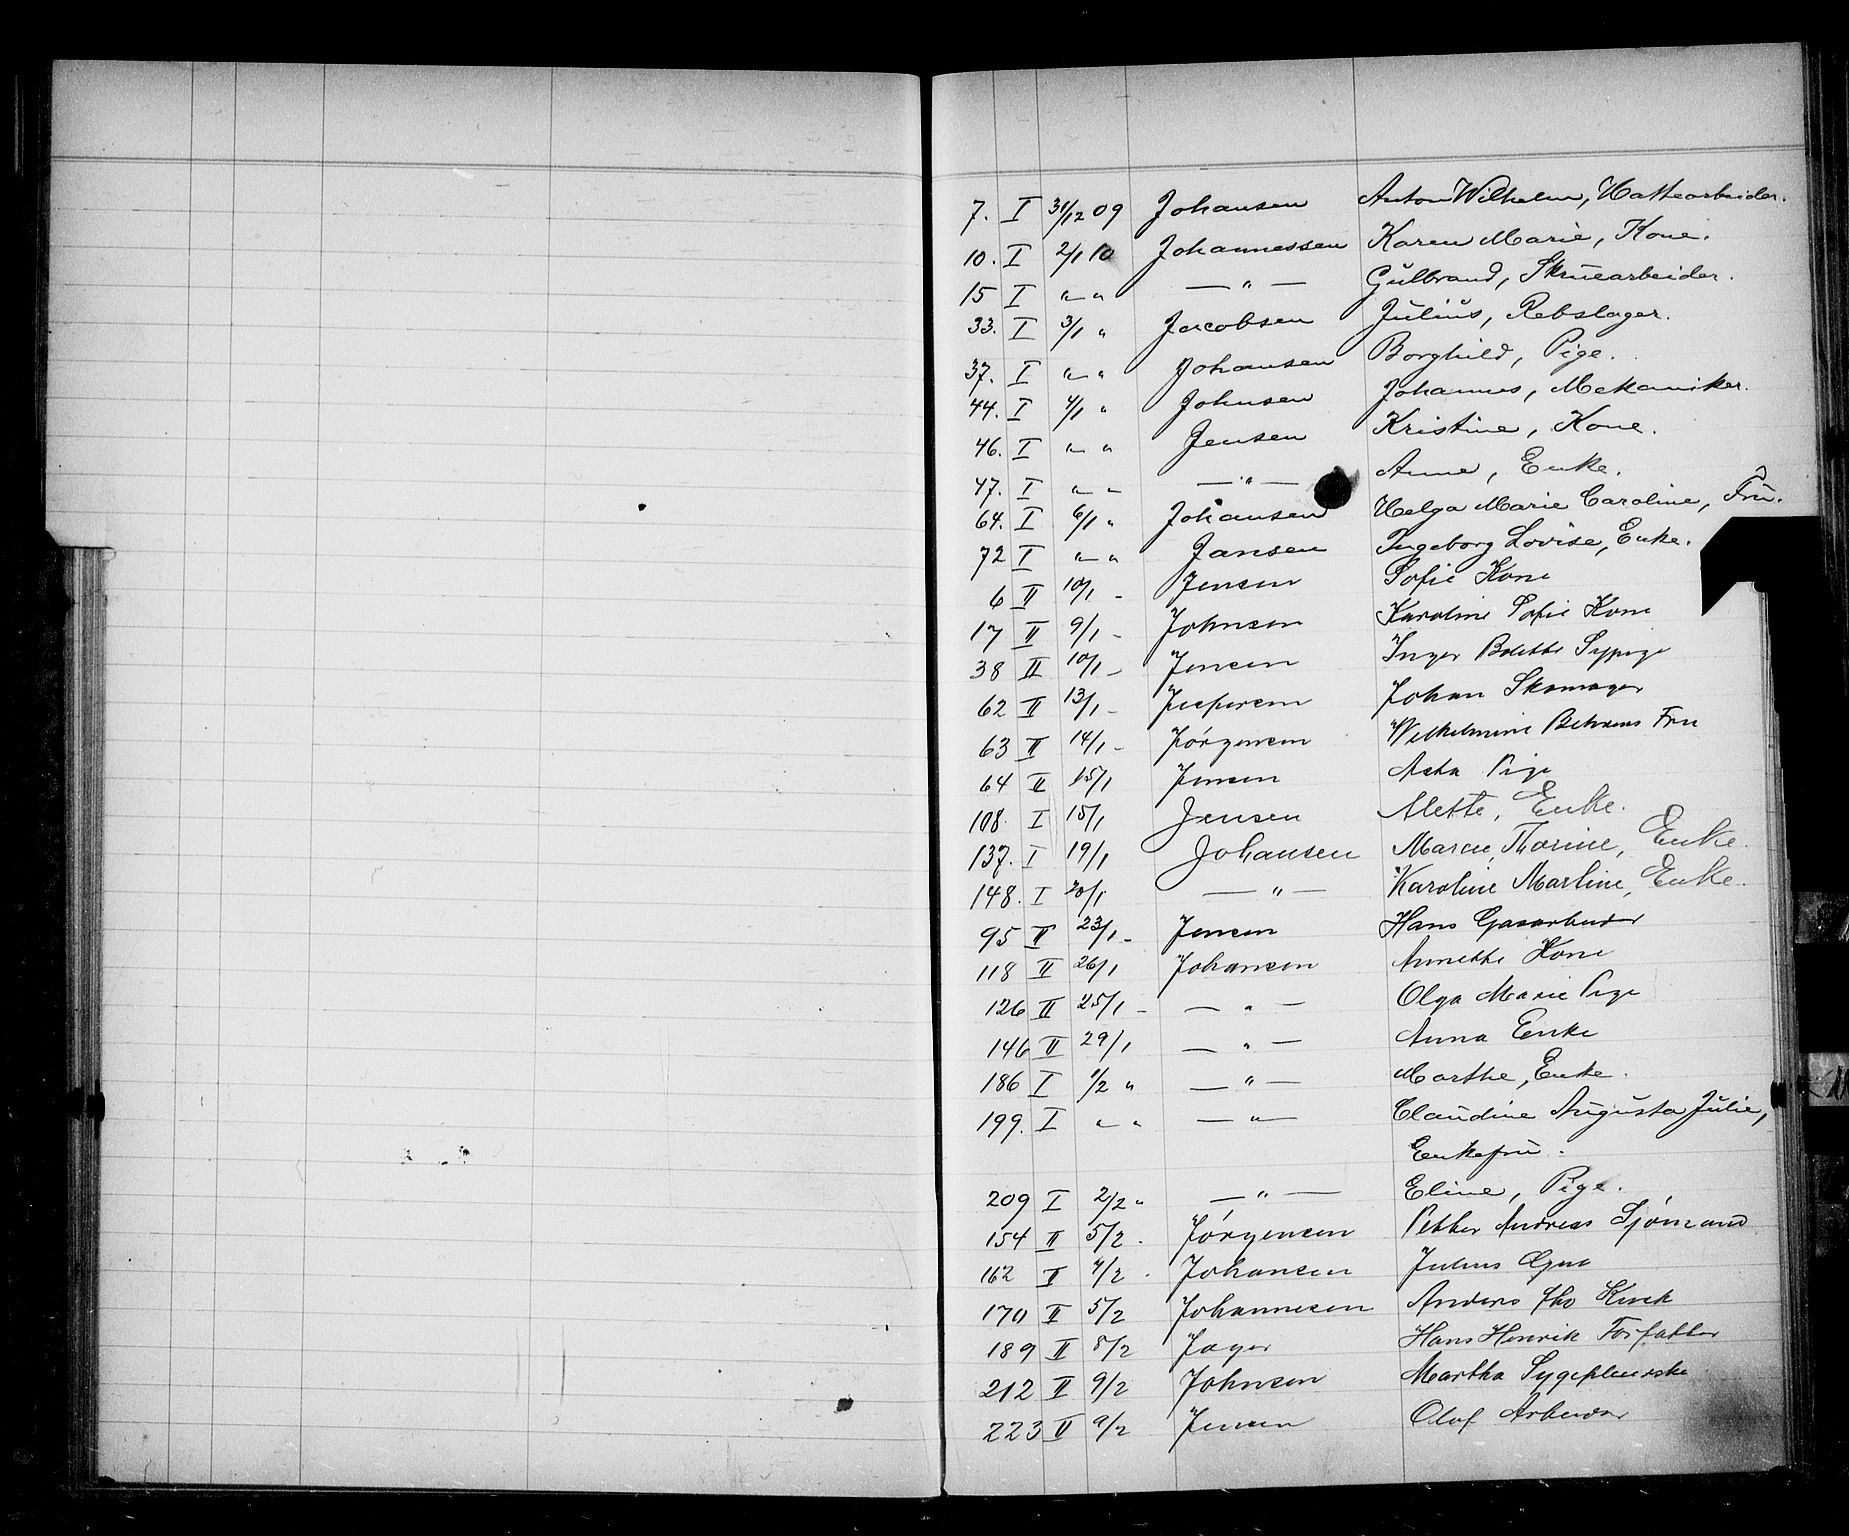 7. I 31/12 09 Johansen Anton Wilhelm, Hattearbeider.
10. I 2/1 10 Johannessen Karen Marie, Kone.
15 I " " — " — Gulbrand, Skruearbeider.
33. I 3/1 " Jacobsen Julius, Rebslager.
37. I " " Johansen Borghild, Pige.
44. I 4/1 " Johnsen Johannes, Mekaniker.
46. I " " Jensen Kristine, Kone.
47. I " " — " — Anne, Enke.
64. I 6/1 " Johansen Helga Marie Caroline, Fru.
72 I " " Jansen Ingeborg Lovise, Enke.
6 II 10/1 - Jensen Sofie Kone
17 II 9/1 - Johnsen Karoline Sofie Kone
38 II 10/1 - Jensen Inger Bolette Sypige
62 II 13/1 - Jespersen Johan Skomager
63 II 14/1 - Jörgensen Wilhelmine Behrens Fru
64 II 15/1 Jensen Asta Pige
108. I 15/1 Jensen Mette, Enke.
137. I 19/1 Johansen Maren, Thorine, Enke
148. I 20/1 — " — Karoline Martine, Enke.
95 II 23/1 - Jensen Hans Gasarbeider
118 II 26/1 Johansen Annette Kone
126 II 25/1 - — " — Olga Marie Pige
146 II 29/1 — " — Anna Enke
186 I 1/2 " — " — Marthe, Enke.
199. I " " — " — Claudine Augusta Julie,
Enkefru.
209 I 2/2 " — " — Eline, Pige.
154 II 5/2 - Jörgensen Petter Andreas Sjömand
162 II 4/2 - Johansen Julius
170 II 5/2 Johannesen Anders
189 II 8/2 Jæger Hans Henrik Forfatter
212 II 9/2 Johnsen Martha Sygepleierske
223 II 9/2 Jensen Olaf Arbeider